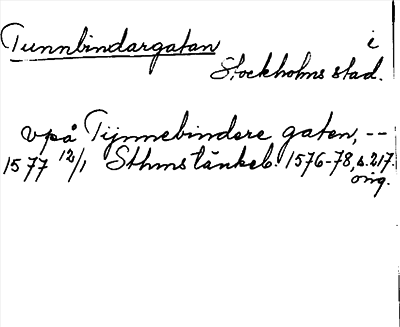 Tunnbindargatan i
Stockholms stad.
vpå Tÿnnebindere gaten, --
1577 12/1 Sthms tänkeb. 1576-78, s. 217.
orig.